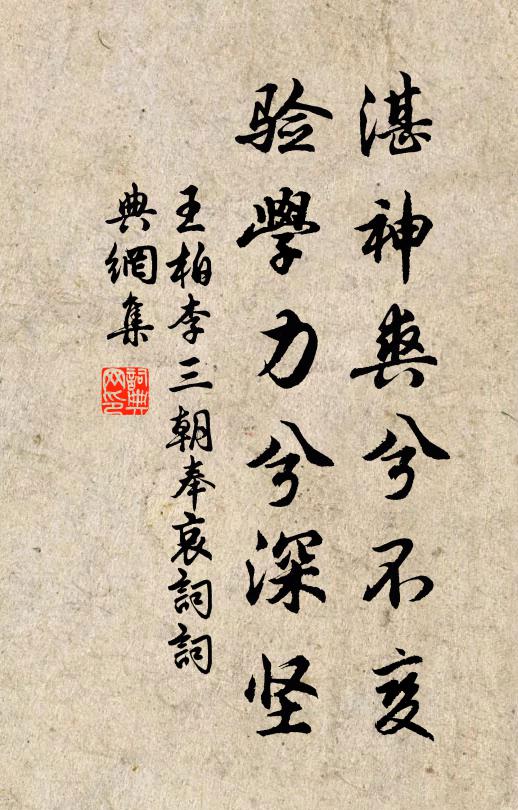 湛神爽兮不变
验学力兮深坚
王柏李三朝奉哀詞詞
典網集
詞典网印